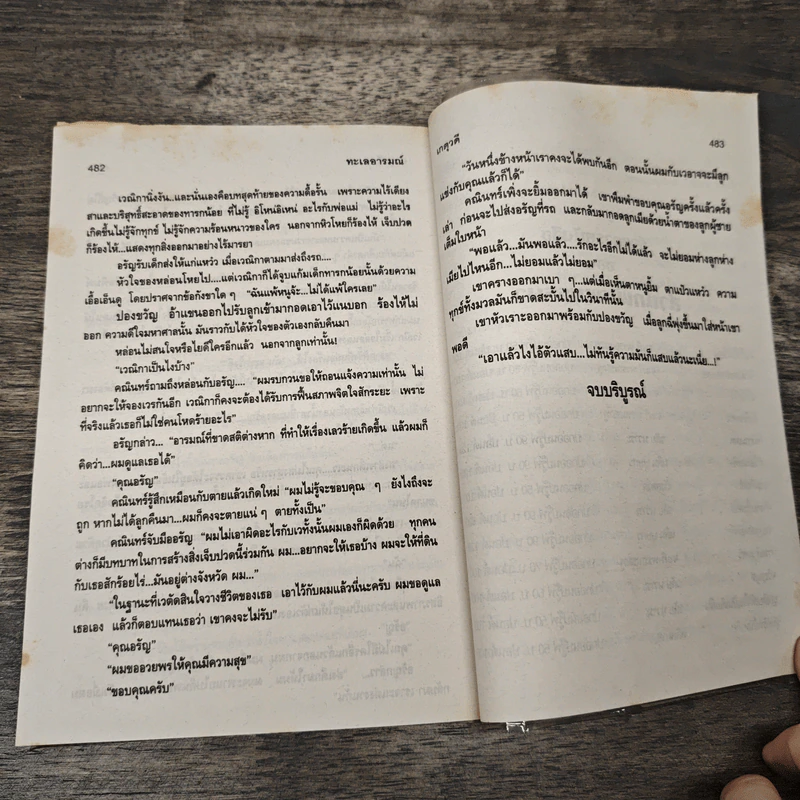 482
ทะเลอารมณ์
เวณิกานิ่งงัน..และนั่นเองคือบทสุดท้ายของความดื้อรั้น เพราะความไร้เดียง
สาและบริสุทธิ์สะอาดของทารกน้อย ที่ไม่รู้ อิโหน่อิเหน่ อะไรกับพ่อแม่ ไม่รู้ว่าอะไร
เกิดขึ้นไม่รู้จักทุกข์ ไม่รู้จักความร้อนหนาวของใคร นอกจากหิวโหยก็ร้องไห้ เจ็บปวด
ก็ร้องไห้...แสดงทุกสิ่งออกมาอย่างไร้มารยา
อรัญรับเด็กส่งให้แก่แหว๋ว เมื่อเวณิกาตามมาส่งถึงรถ....
หัวใจของหล่อนโหยไป....แต่เวณิกาก็ได้จูบแก้มเด็กทารกน้อยนั้นด้วยความ
เอื้อเอ็นดู โดยปราศจากข้อกังขาใด ๆ “ฉันแพ้หนูจ้ะ...ไม่ได้แพ้ใครเลย”
ปองขวัญ อ้าแขนออกไปรับลูกเข้ามากอดเอาไว้แนบอก ร้องไห้ไม่
ออก ความดีใจมหาศาลนั้น มันราวกับได้หัวใจของตัวเองกลับคืนมา
หล่อนไม่สนใจหรือไยดีใครอีกแล้ว นอกจากลูกเท่านั้น!
“เวณิกาเป็นไงบ้าง”
คณินทร์ถามถึงหล่อนกับอรัญ.... “ผมรบกวนขอให้ถอนแจ้งความเท่านั้น ไม่
อยากจะให้จองเวรกันอีก เวณิกาก็คงจะต้องได้รับการฟื้นสภาพจิตใจสักระยะ เพราะ
ที่จริงแล้วเธอก็ไม่ใช่คนโหดร้ายอะไร”
อรัญกล่าว... “อารมณ์ที่ขาดสติต่างหาก ที่ทำให้เรื่องเลวร้ายเกิดขึ้น แล้วผมก็
คิดว่า...ผมดูแลเธอได้”
“คุณอรัญ”
คณินทร์รู้สึกเหมือนกับตายแล้วเกิดใหม่ “ผมไม่รู้จะขอบคุณ ๆ ยังไงถึงจะ
ถูก หากไม่ได้ลูกคืนมา...ผมก็คงจะตายแน่ ๆ ตายทั้งเป็น”
คณินทร์จับมืออรัญ “ผมไม่เอาผิดอะไรกับเวทั้งนั้นผมเองก็ผิดด้วย ทุกคน
ต่างก็มีบทบาทในการสร้างสิ่งเจ็บปวดนี้ร่วมกัน ผม...อยากจะให้เธอบ้าง ผมจะให้ที่ดิน
กับเธอสักร้อยไร่...มันอยู่ต่างจังหวัด ผม...”
“ในฐานะที่เวตัดสินใจวางชีวิตของเธอ เอาไว้กับผมแล้วนี่นะครับ ผมขอดูแล
เธอเอง แล้วก็ตอบแทนเธอว่า เขาคงจะไม่รับ”
“คุณอรัญ”
“ผมขออวยพรให้คุณมีความสุข”
“ขอบคุณครับ”
เกตุวดี
483
“วันหนึ่งข้างหน้าเราคงจะได้พบกันอีก ตอนนั้นผมกับเวอาจจะมีลูก
แข่งกับคุณแล้วก็ได้”
คณินทร์เพิ่งจะยิ้มออกมาได้ เขาพึมพำขอบคุณอรัญครั้งแล้วครั้ง
เล่า ก่อนจะไปส่งอรัญที่รถ และกลับมากอดลูกเมียด้วยน้ำตาของลูกผู้ชาย
เต็มใบหน้า
“พอแล้ว...มันพอแล้ว....รักอะไรอีกไม่ได้แล้ว จะไม่ยอมห่างลูกห่าง
เมียไปไหนอีก...ไม่ยอมแล้วไม่ยอม”
เขาครางออกมาเบา ๆ...แต่เมื่อเห็นตาหนูยิ้ม ตาแป๋วแหว๋ว ความ
ทุกข์ทั้งมวลมันก็ขาดสะบั้นไปในวินาทีนั้น
เขาหัวเราะออกมาพร้อมกับปองขวัญ เมื่อลูกฉี่พุ่งขึ้นมาใส่หน้าเขา
พอดี
“เอาแล้วไงไอ้ตัวแสบ...ไม่ทันรู้ความมันก็แสบแล้วนะเนี่ย...!”
จบบริบูรณ์